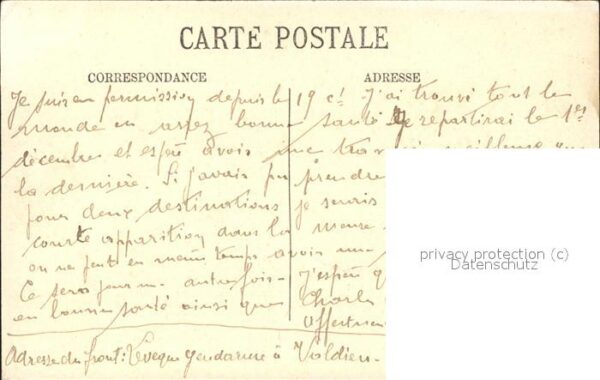 CARTE POSTALE
CORRESPONDANCE
ADRESSE
Je suis en permission depuis le 19 ct J'ai trouvé tout le
monde en assez bonne santé Je repartirai le 1er
décembre et espère avoir une
la dernière. Si j'avais pu prendre
pour deux destinations je serais
courte apparition dans la meuse.
on ne peut en même temps avoir
Ce sera pour une autre fois - J'espère
en bonne santé ainsi que Charles
Adresse du front: Gendarme à Valdieu -
privacy protection (c)
Datenschutz